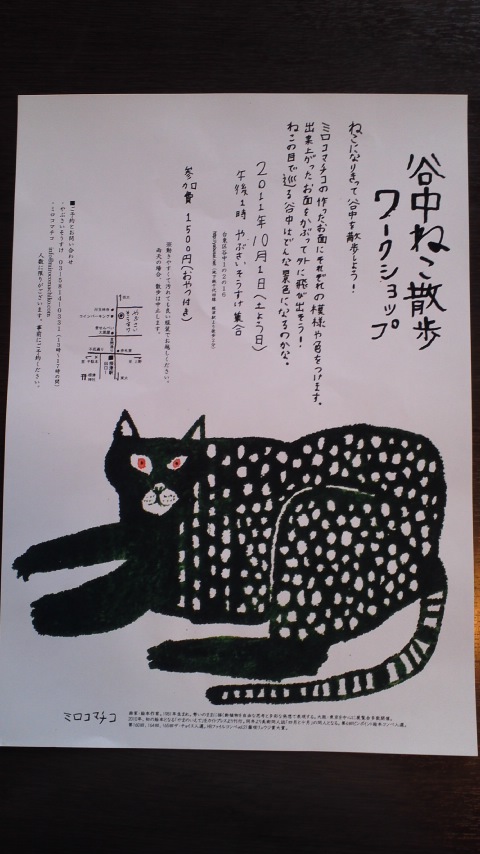 谷中ねこ散歩
ワークショップ
ねこになりきって谷中を散歩しよう!
ミロコマチコの作ったお面にそれぞれの模様や色をつけます。
出来上がったお面をかぶって外に飛び出そう!
ねこの目で巡る谷中はどんな景色になるのかな。
2011年10月1日(土よう日)
午後1時 やぶさいそうすけ集合
参加費 1500円(おやつ付き)
※動きやすくて汚れても良い服装でお越しください。
雨天の場合、散歩は中止します。
■ご予約とお問い合わせ
・やぶさいそうすけ 03-5814-
・ミロコマチコ info@mirocomachiko.com
人数に限りがございます。事前にご予約ください。
ミロコマチコ